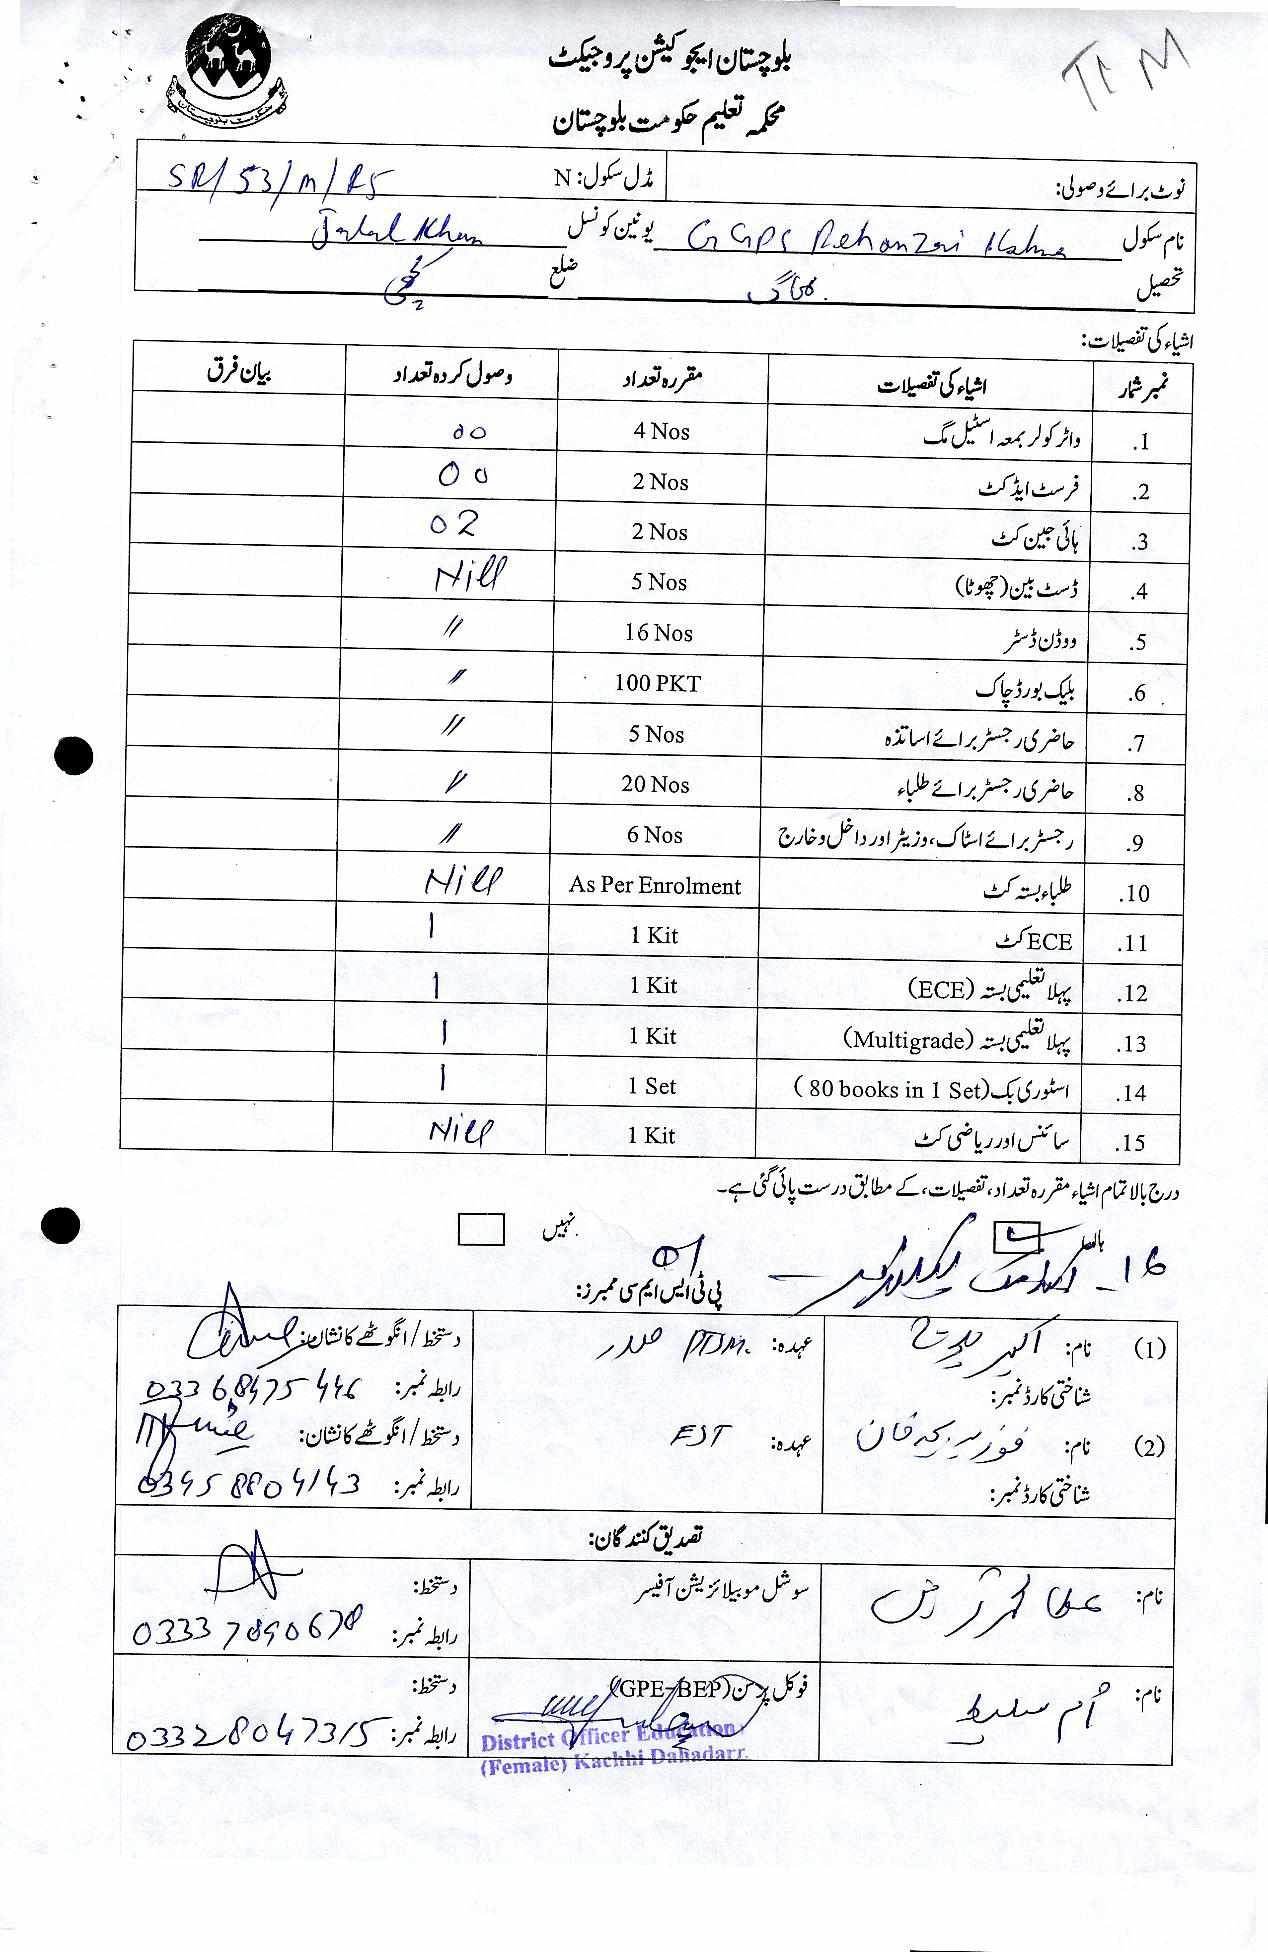 بلوچستان ایجوکیشن پروجیکٹ
محکمہ تعلیم حکومت بلوچستان
نوٹ برائے وصولی: مڈل سکول: N SR/53/M/RS
نام سکول GGPS Rehanzai یونین کونسل Jalal Khan
تحصیل بھاگ ضلع کچھی
اشیاء کی تفصیلات:
نمبر شمار اشیاء کی تفصیلات مقررہ تعداد وصول کردہ تعداد بیان فرق
1. واٹر کولر بمعہ اسٹیل مگ 4 Nos 00
2. فرسٹ ایڈ کٹ 2 Nos 00
3. ہائی جین کٹ 2 Nos 02
4. ڈسٹ بین (چھوٹا) 5 Nos Nill
5. ووڈن ڈسٹر 16 Nos //
6. بلیک بورڈ چاک 100 PKT //
7. حاضری رجسٹر برائے اساتذہ 5 Nos //
8. حاضری رجسٹر برائے طلباء 20 Nos //
9. رجسٹر برائے اسٹاک، وزیٹر اور داخل و خارج 6 Nos //
10. طلباء بستہ کٹ As Per Enrolment Nill
11. ECE کٹ 1 Kit 1
12. پہلا تعلیمی بستہ (ECE) 1 Kit 1
13. پہلا تعلیمی بستہ (Multigrade) 1 Kit 1
14. اسٹوری بک (80 books in 1 Set) 1 Set 1
15. سائنس اور ریاضی کٹ 1 Kit Nill
درج بالا تمام اشیاء مقررہ تعداد، تفصیلات، کے مطابق درست پائی گئی ہے۔
ہاں نہیں
16- 01
پی ٹی ایس ایم سی ممبرز:
(1) نام: اکبر عہدہ: صدر PTSM. دستخط/انگوٹھے کا نشان:
شناختی کارڈ نمبر: رابطہ نمبر: 03368475446
(2) نام: عہدہ: EST دستخط/انگوٹھے کا نشان:
شناختی کارڈ نمبر: رابطہ نمبر: 03458804143
تصدیق کنندگان:
نام: سوشل موبیلائزیشن آفیسر دستخط:
رابطہ نمبر: 03337890678
نام: ام سلیط فوکل پرسن (GPE-BEP) دستخط:
رابطہ نمبر: 03328047315
District Officer Education
(Female) Kachhi Dahadarr.